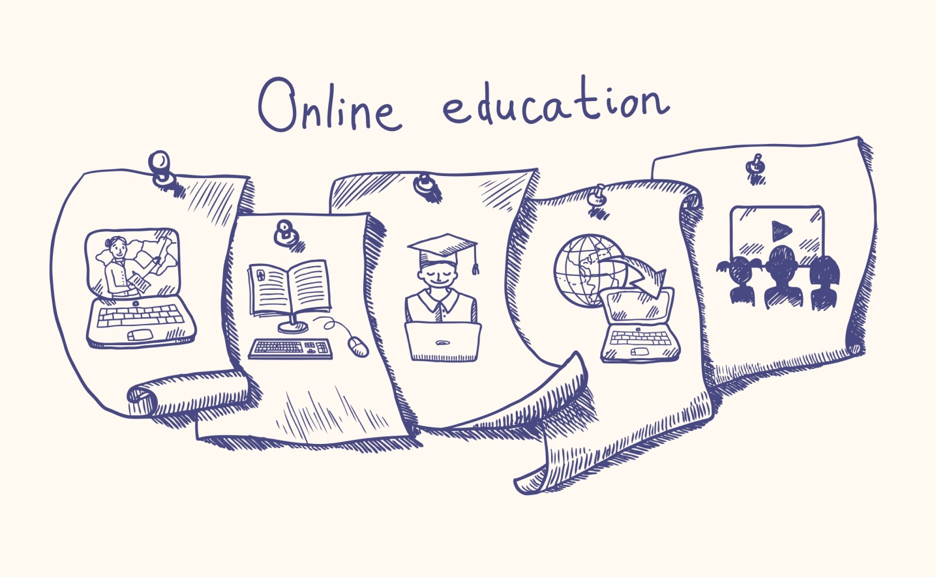 Online education